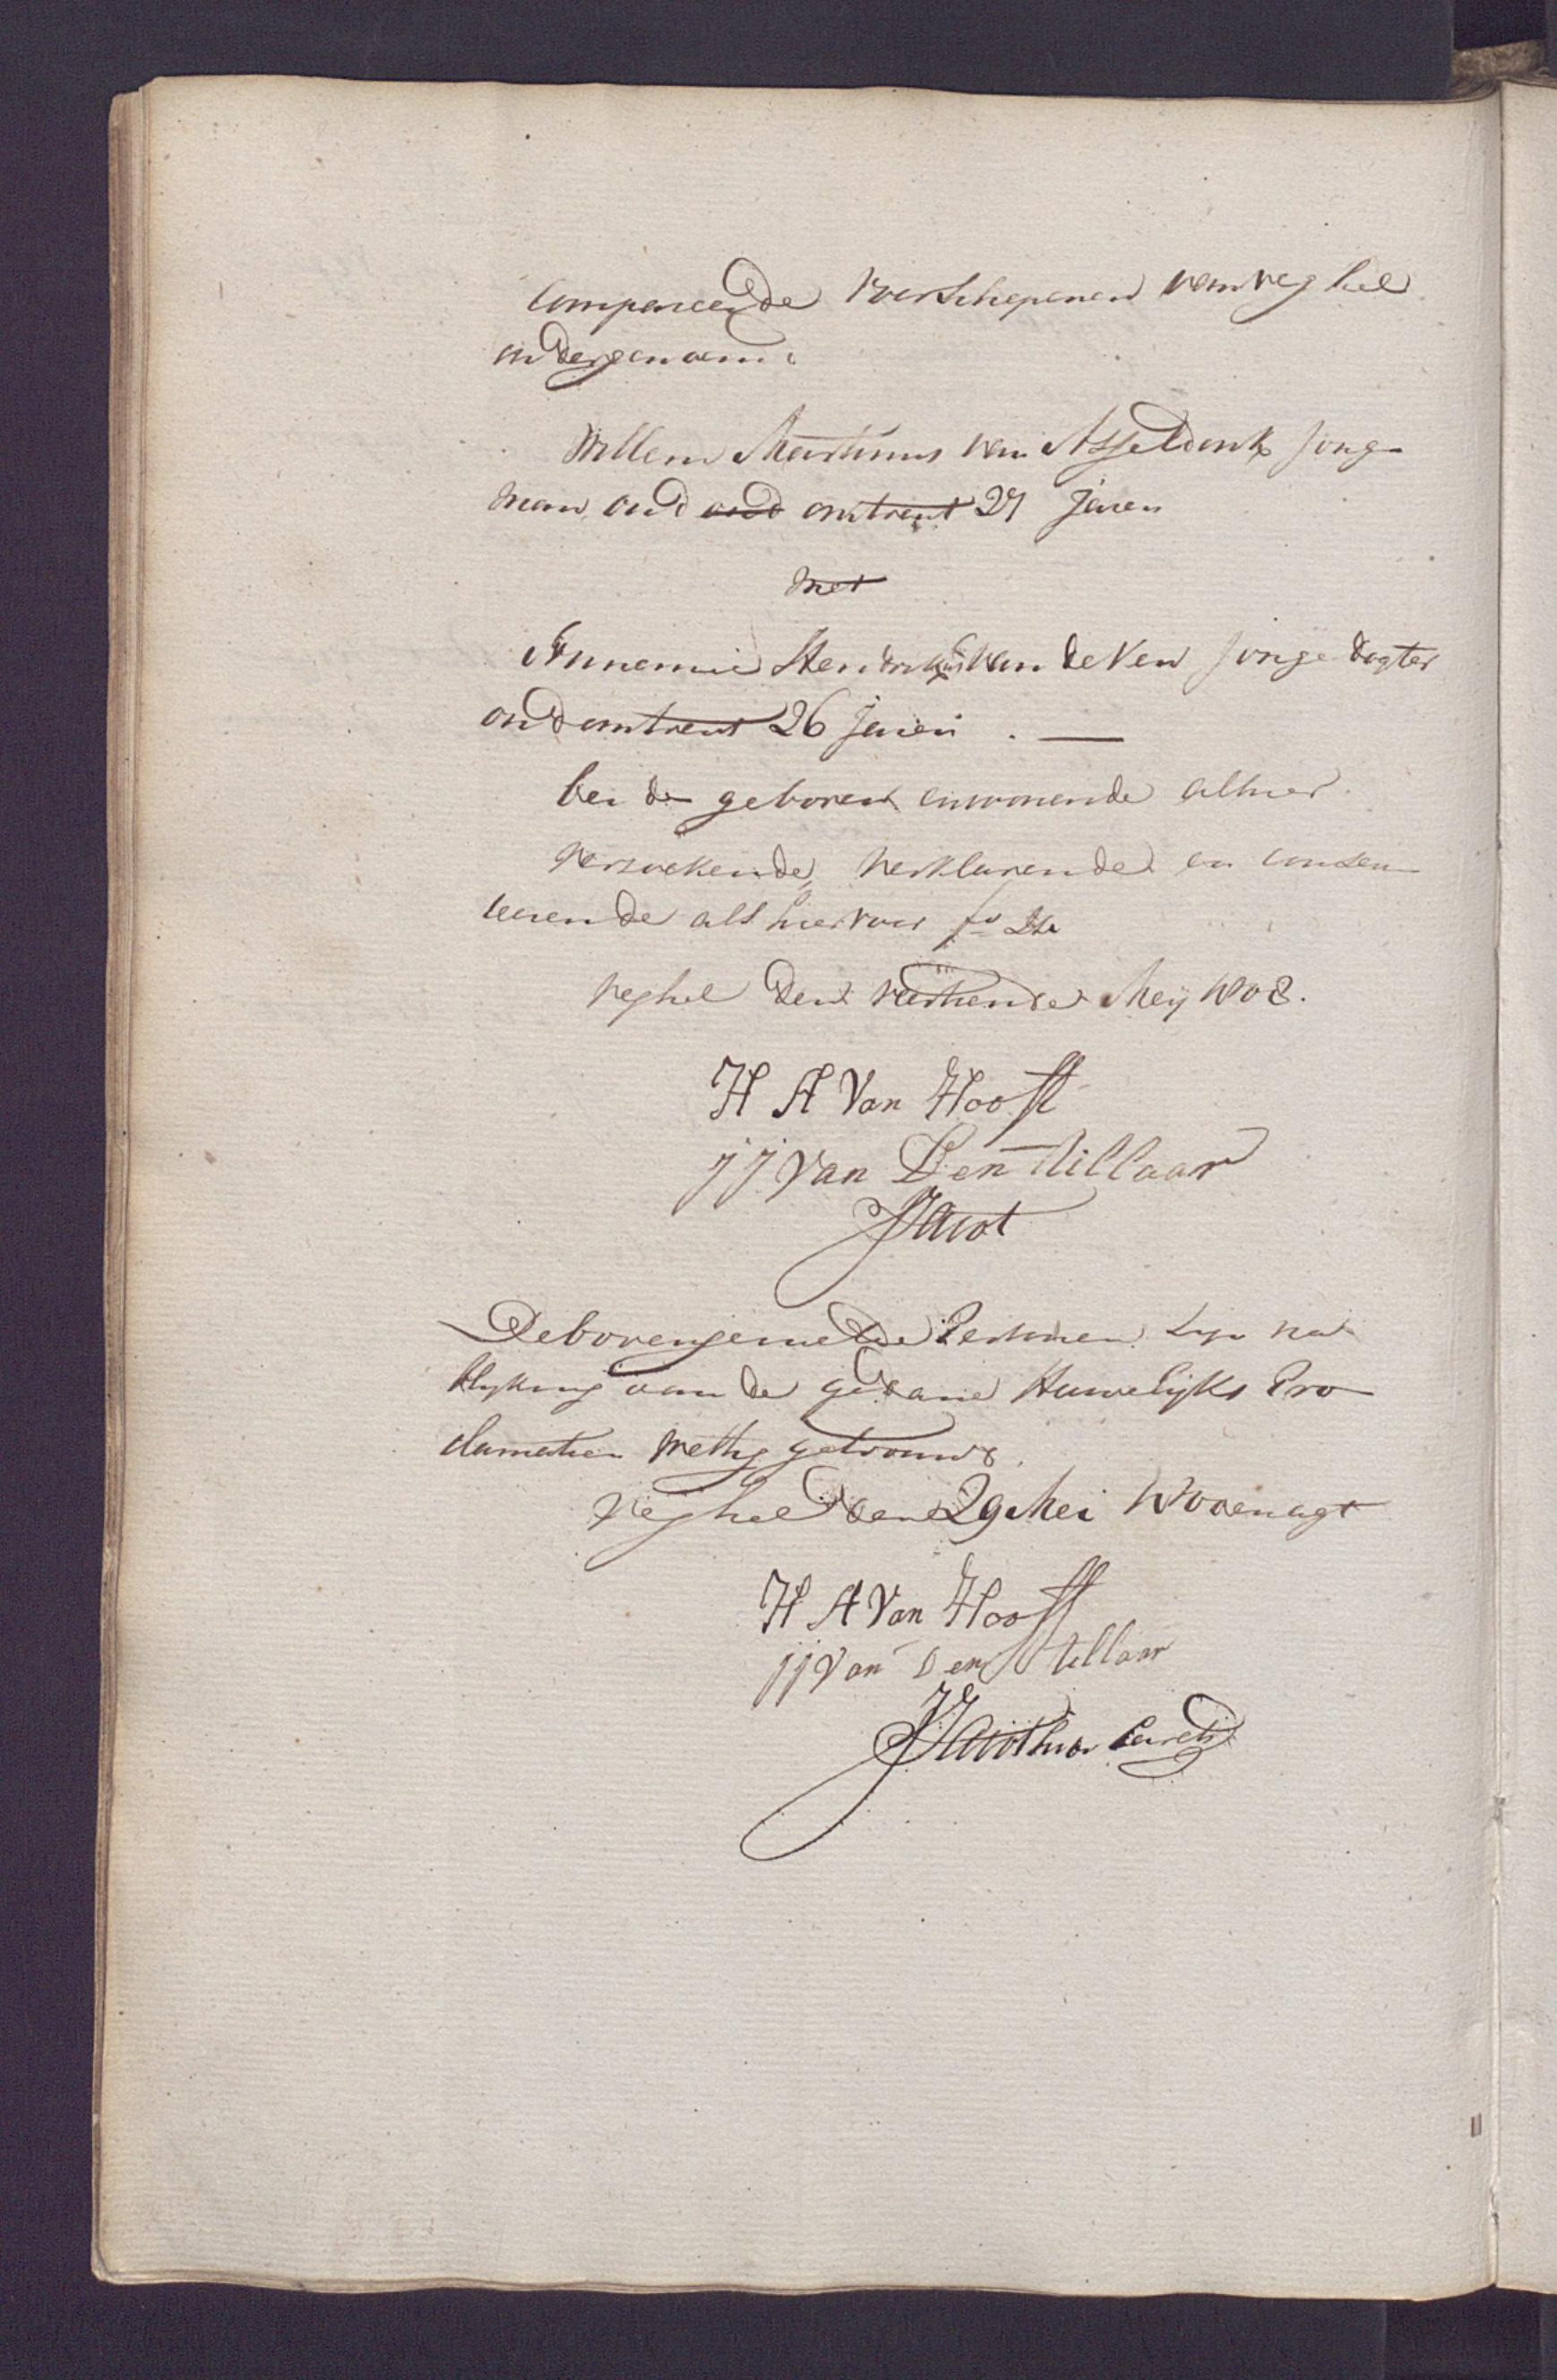 Compareerde voor Schepenen van Veghel
ondergenoemd
Willem Martinus van Asseldonk Jong-
man, oud omtrent 27 Jaren
met
Annemie Hendrikus van de Ven Jonge dogter
oud omtrent 26 Jaren . —
beide geboren en wonende alhier.
Verzoekende, verklarende en consen-
teerende als hiervoor fo
Veghel den veertiende Meij 1808.
H A Van Hooft
jj van Den Tillaar
De bovengemelde Persoonen zyn na
blyking van de gedane Huwelijks Pro
clamatien wettig getrouwd.
Veghel den 29 Mei 1800 en agt
H A Van Hooft
jj Van Den Tillaar